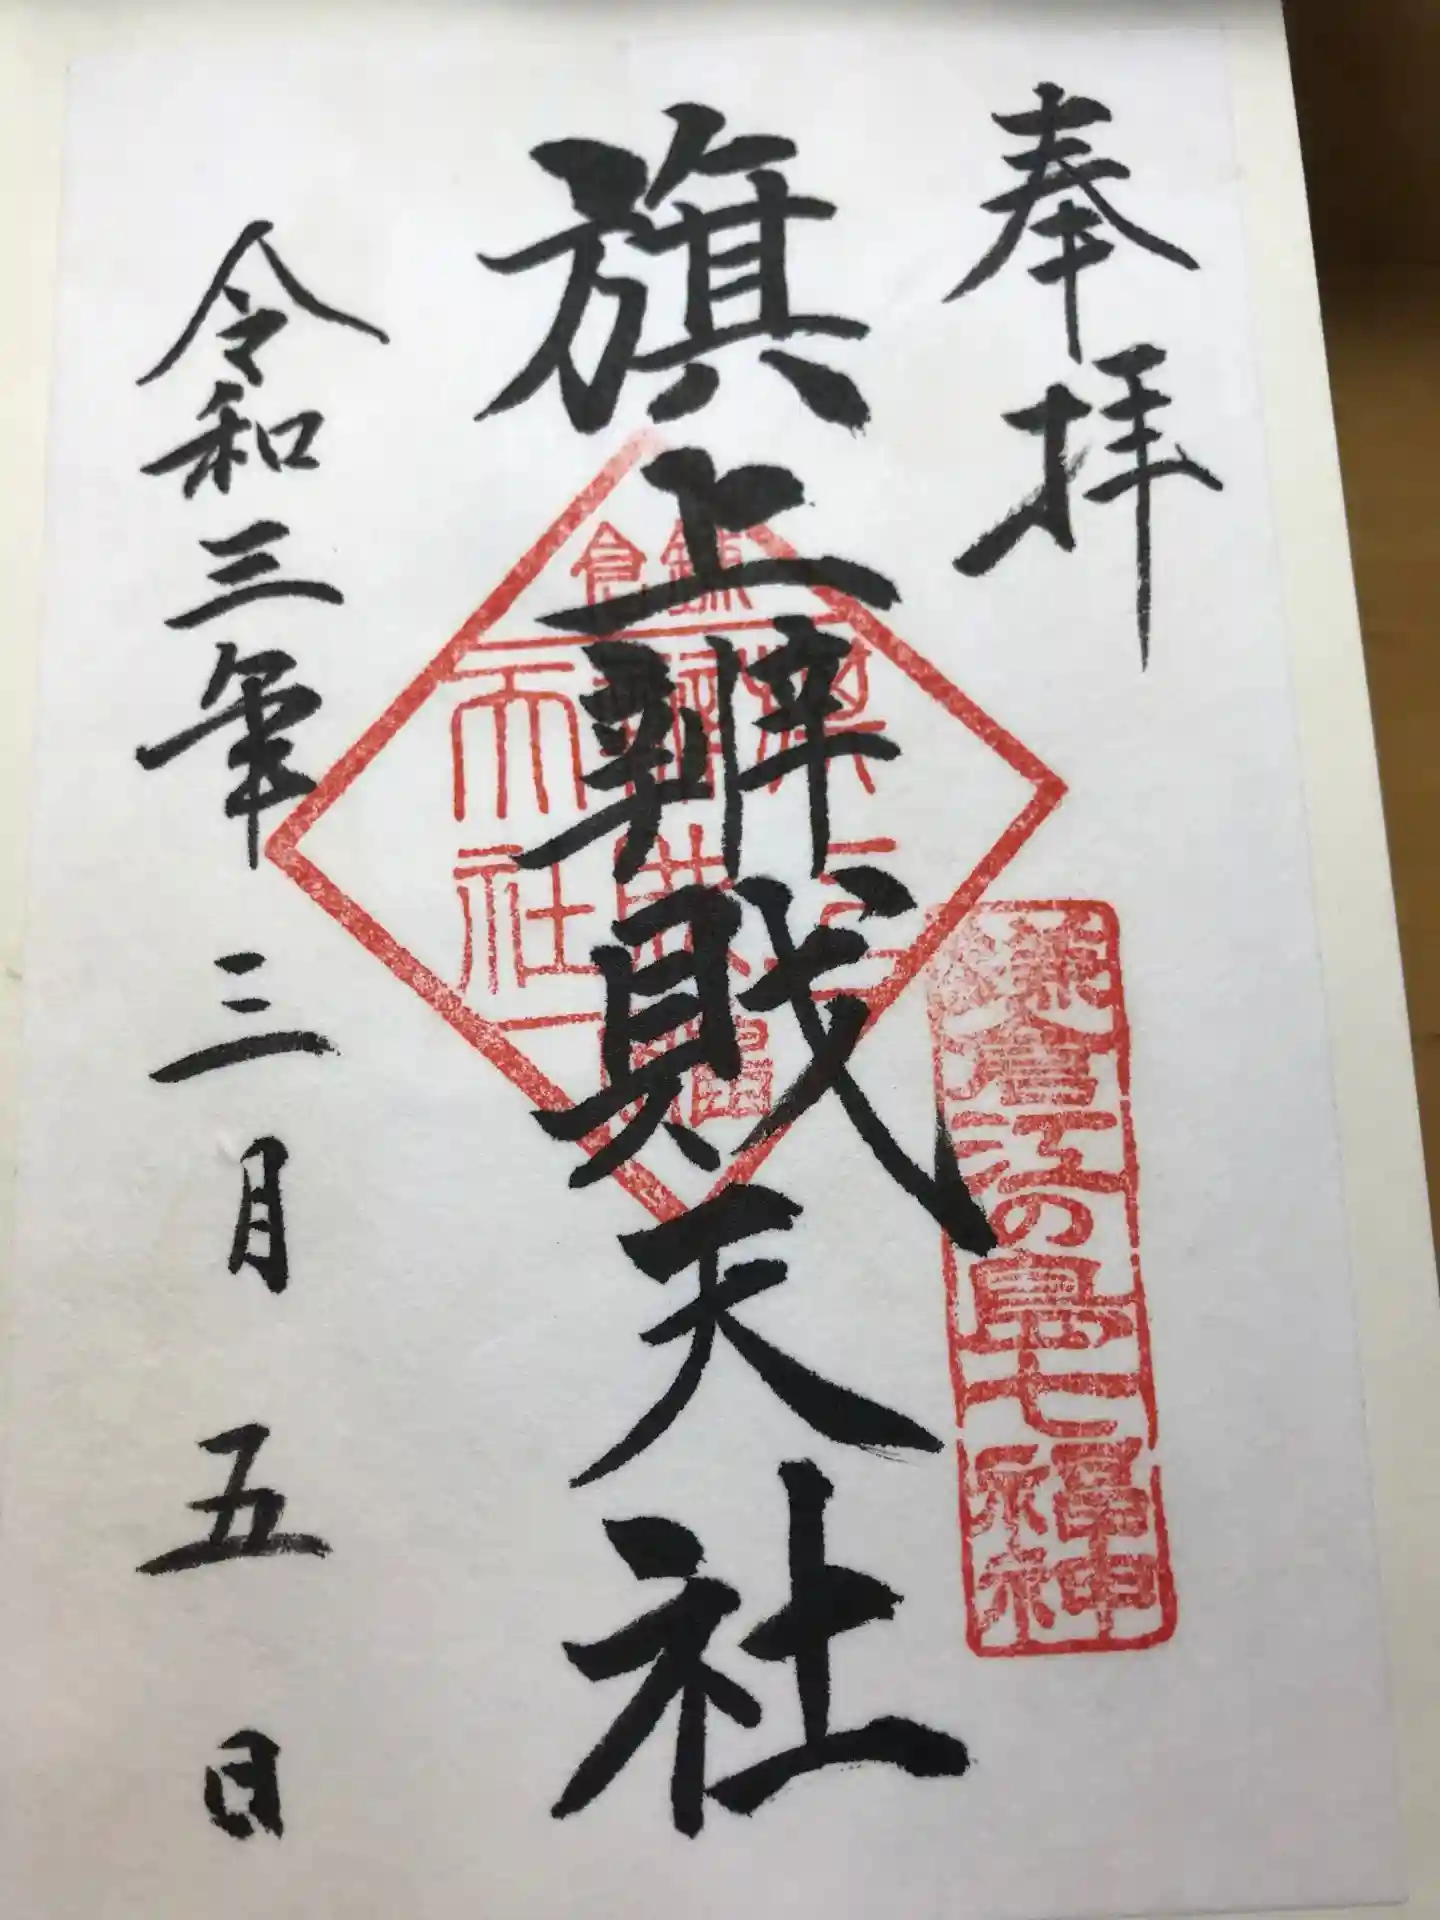 奉拝
鎌倉江の島七福神
旗上辨財天社
鎌倉
旗上
辨財
天社
令和三年三月五日